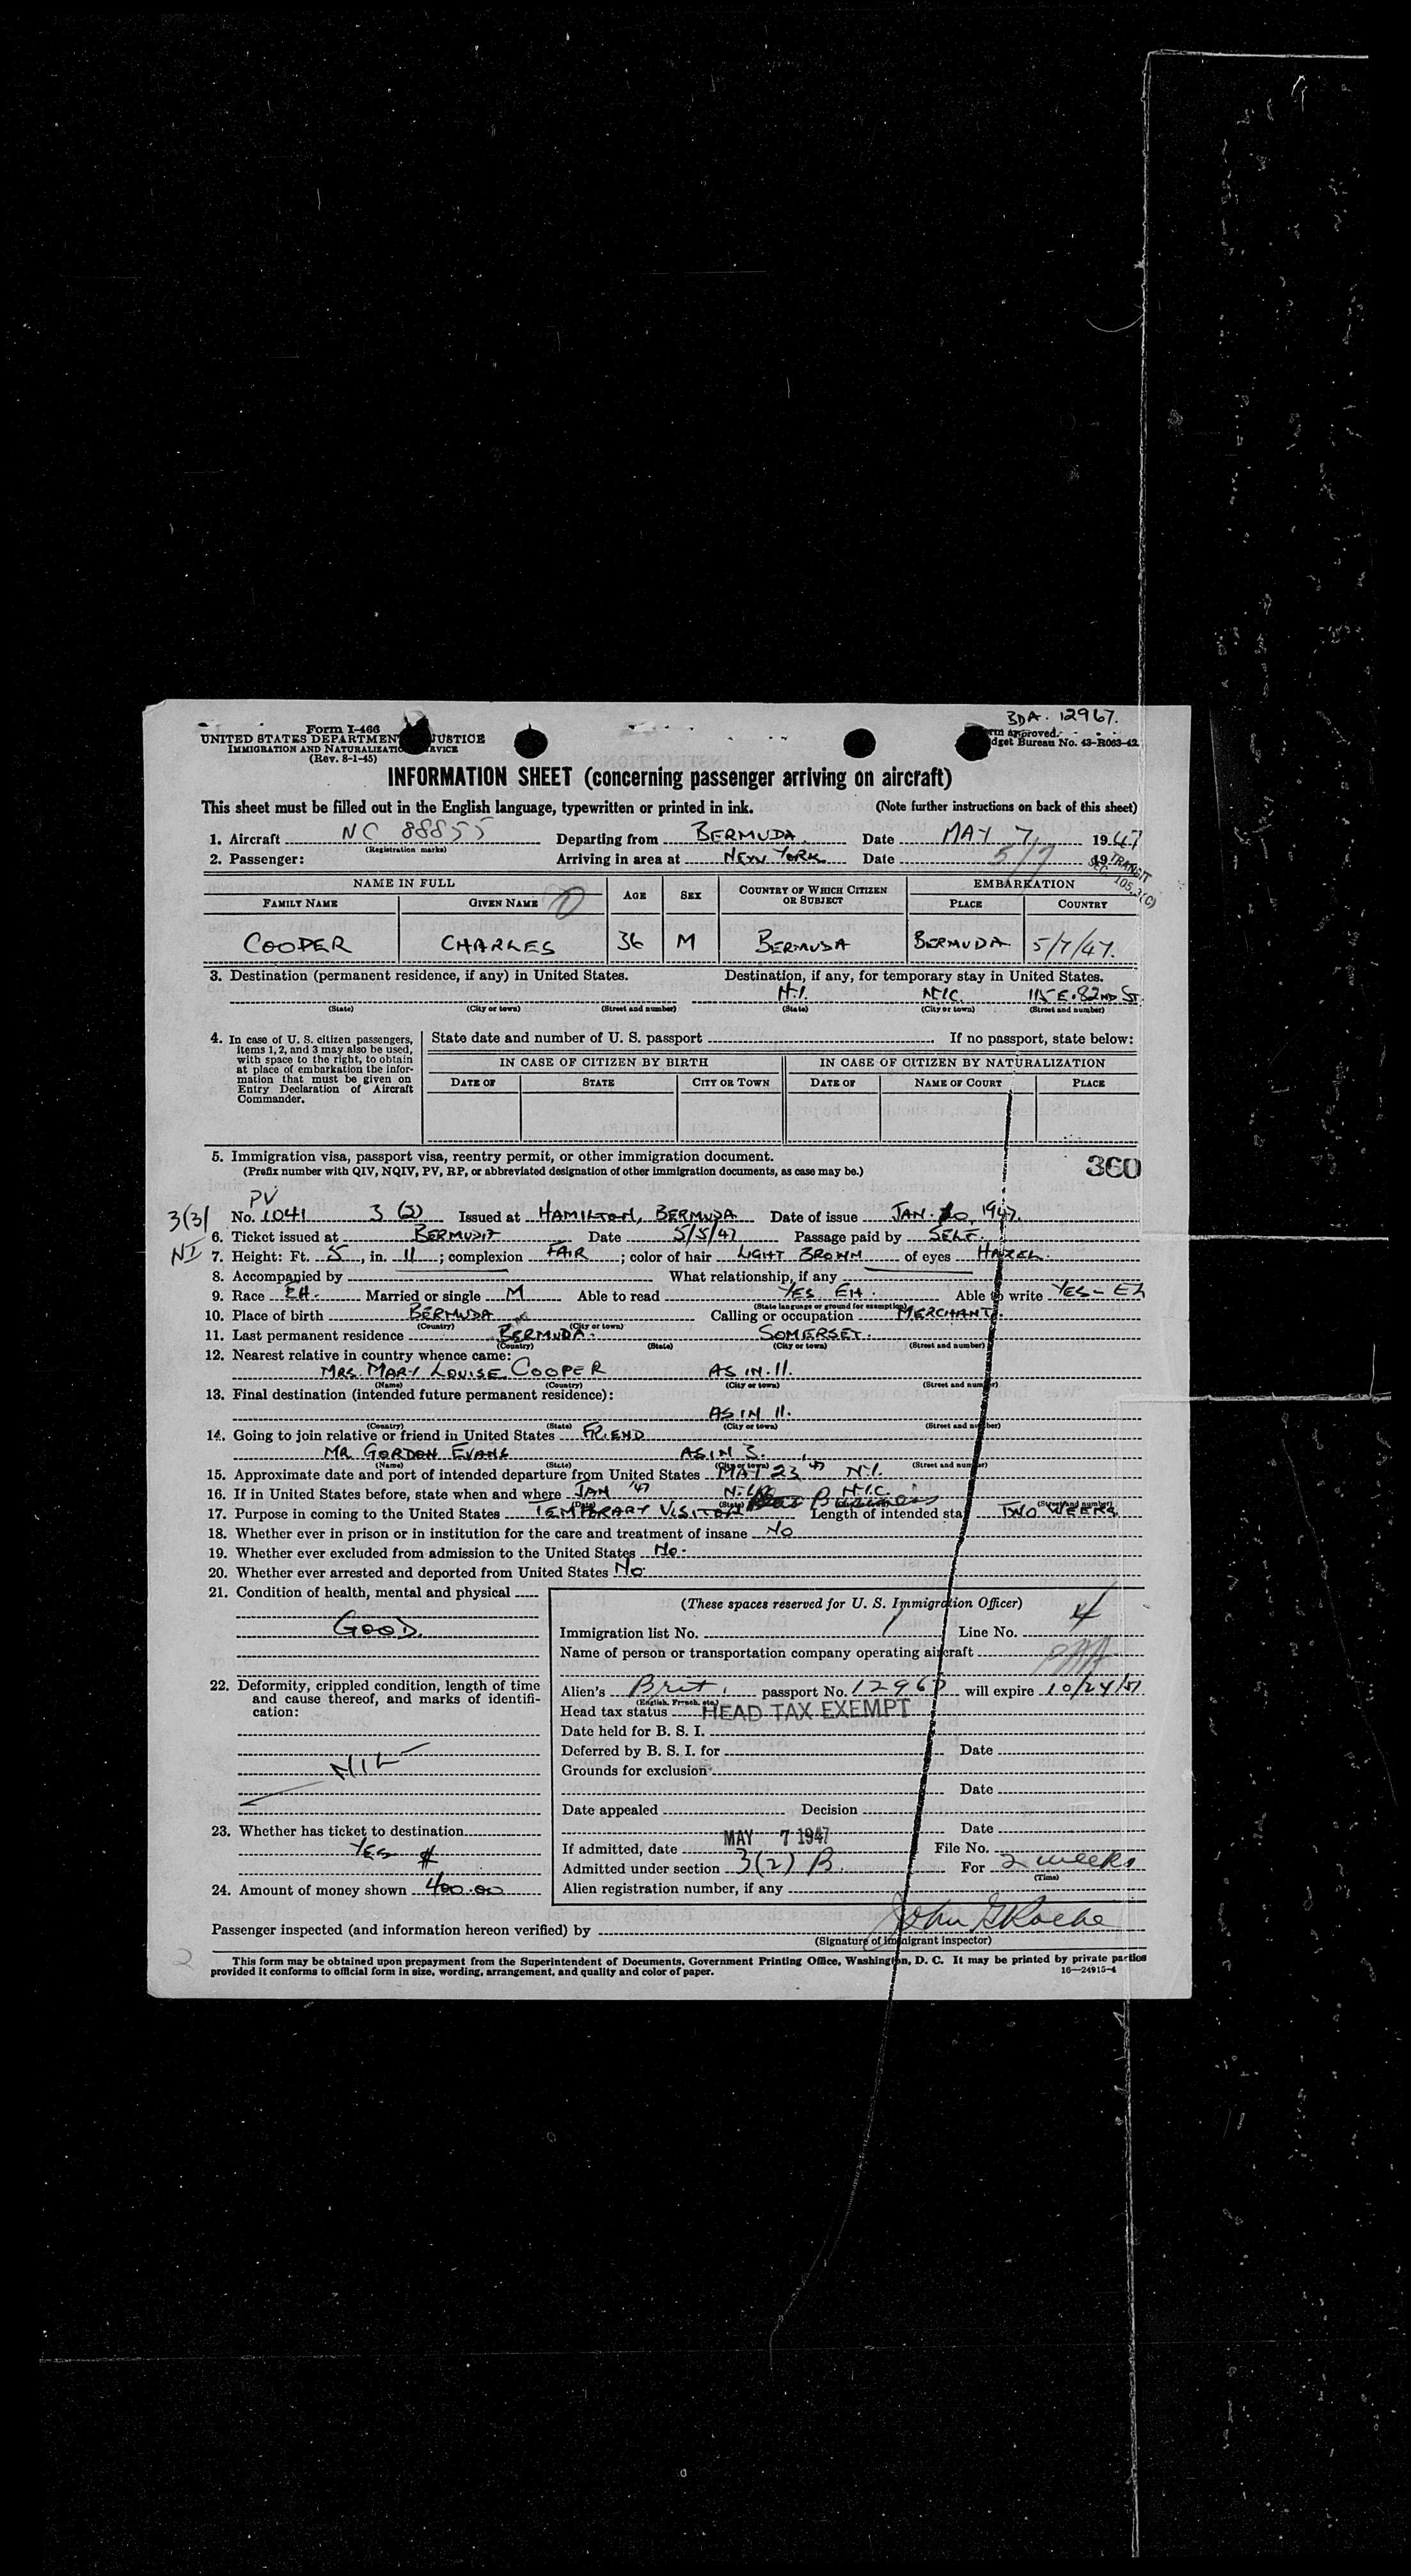 BDA. 12967.
Form I-466
UNITED STATES DEPARTMENT JUSTICE
IMMIGRATION AND NATURALIZATION SERVICE
(Rev. 8-1-45)
approved.
dget Bureau No. 43-R063-42
INFORMATION SHEET (concerning passenger arriving on aircraft)
This sheet must be filled out in the English language, typewritten or printed in ink. (Note further instructions on back of this sheet)
1. Aircraft NC 88855 Departing from BERMUDA Date MAY 7, 1947
(Registration marks)
2. Passenger: Arriving in area at NEW YORK Date 5/7 19
TRANSIT
SEC. 105.3(C)
NAME IN FULL AGE SEX COUNTRY OF WHICH CITIZEN OR SUBJECT EMBARKATION
FAMILY NAME GIVEN NAME PLACE COUNTRY
COOPER CHARLES 36 M BERMUDA BERMUDA 5/7/47.
3. Destination (permanent residence, if any) in United States. Destination, if any, for temporary stay in United States.
N.Y. N.Y.C. 115 E. 82ND ST.
(State) (City or town) (Street and number) (State) (City or town) (Street and number)
4. In case of U. S. citizen passengers, items 1, 2, and 3 may also be used, with space to the right, to obtain at place of embarkation the information that must be given on Entry Declaration of Aircraft Commander.
State date and number of U. S. passport If no passport, state below:
IN CASE OF CITIZEN BY BIRTH IN CASE OF CITIZEN BY NATURALIZATION
DATE OF STATE CITY OR TOWN DATE OF NAME OF COURT PLACE
5. Immigration visa, passport visa, reentry permit, or other immigration document.
(Prefix number with QIV, NQIV, PV, RP, or abbreviated designation of other immigration documents, as case may be.)
360
PV
3(3) No. 1041 3 (2) Issued at HAMILTON, BERMUDA Date of issue JAN. 20, 1947.
6. Ticket issued at BERMUDA Date 5/5/47 Passage paid by SELF.
NI 7. Height: Ft. 5, in. 11; complexion FAIR; color of hair LIGHT BROWN of eyes HAZEL.
8. Accompanied by What relationship, if any
9. Race EH. Married or single M Able to read YES EH. Able to write YES - EH
(State language or ground for exemption)
10. Place of birth BERMUDA Calling or occupation MERCHANT.
(Country) (City or town)
11. Last permanent residence BERMUDA. SOMERSET.
(Country) (State) (City or town) (Street and number)
12. Nearest relative in country whence came:
MRS. MARY LOUISE COOPER AS IN 11.
(Name) (Country) (City or town) (Street and number)
13. Final destination (intended future permanent residence):
AS IN 11.
(Country) (State) (City or town) (Street and number)
14. Going to join relative or friend in United States FRIEND
MR GORDON EVANS AS IN 3.
(Name) (State) (City or town) (Street and number)
15. Approximate date and port of intended departure from United States MAY 23 47 N.Y.
16. If in United States before, state when and where JAN '47 N.Y. N.Y.C.
(Date) (State) (Street and number)
17. Purpose in coming to the United States TEMPORARY VISITOR Business Length of intended stay TWO WEEKS
18. Whether ever in prison or in institution for the care and treatment of insane NO
19. Whether ever excluded from admission to the United States NO.
20. Whether ever arrested and deported from United States NO.
21. Condition of health, mental and physical
GOOD.
22. Deformity, crippled condition, length of time and cause thereof, and marks of identification:
NIL
23. Whether has ticket to destination
YES $
24. Amount of money shown 400.00
(These spaces reserved for U. S. Immigration Officer)
Immigration list No. 1 Line No. 4
Name of person or transportation company operating aircraft PAA
Alien's Brit. passport No. 12967 will expire 10/24/51
(English, French, etc.)
Head tax status HEAD TAX EXEMPT
Date held for B. S. I.
Deferred by B. S. I. for Date
Grounds for exclusion
Date
Date appealed Decision
Date
If admitted, date MAY 7 1947 File No.
Admitted under section 3(2) B. For 2 weeks
(Time)
Alien registration number, if any
Passenger inspected (and information hereon verified) by John G Roche
(Signature of immigrant inspector)
2
This form may be obtained upon prepayment from the Superintendent of Documents, Government Printing Office, Washington, D. C. It may be printed by private parties
provided it conforms to official form in size, wording, arrangement, and quality and color of paper. 16—24915-4